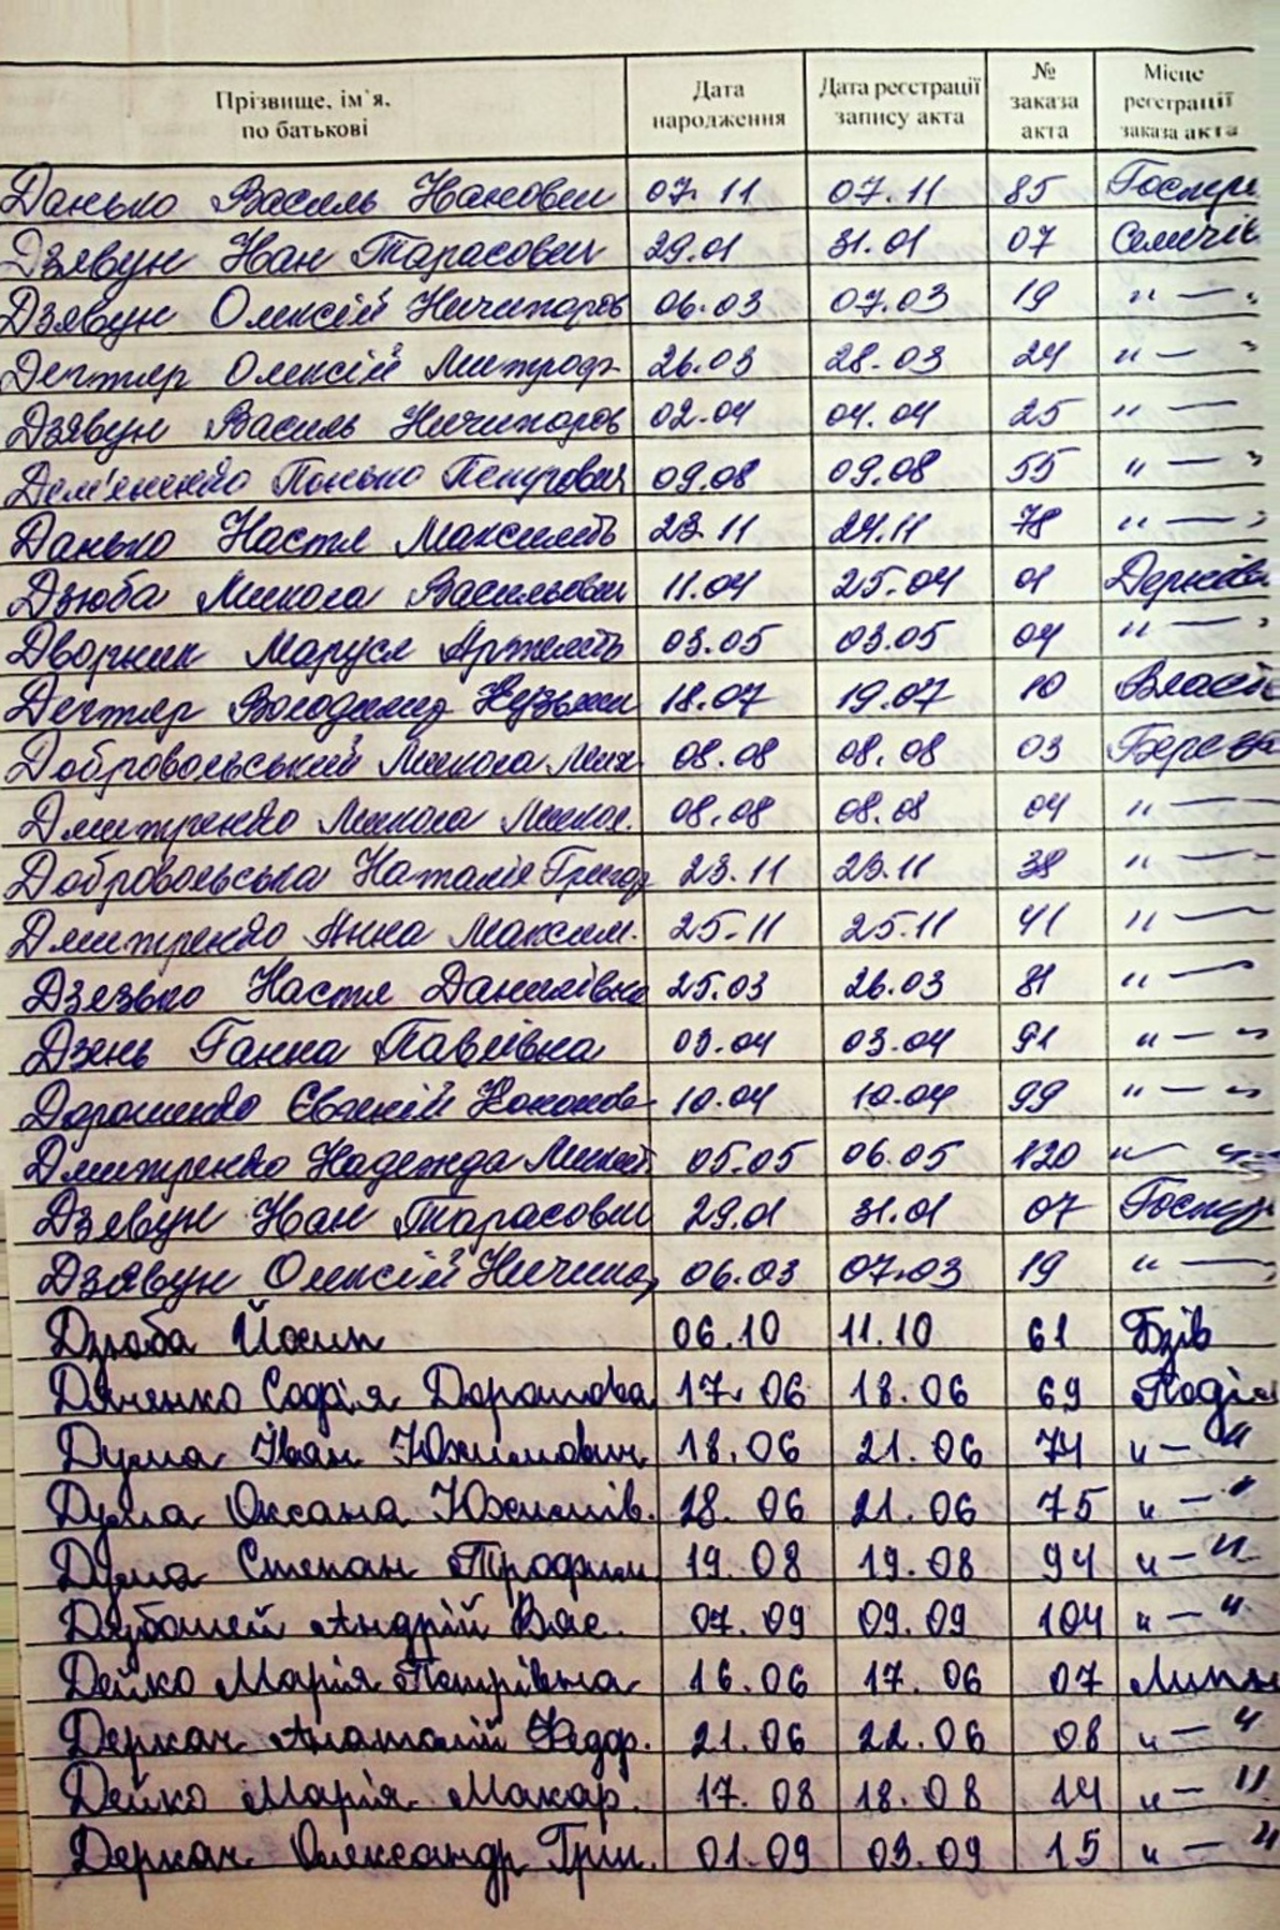 Прізвище, ім'я, по батькові | Дата народження | Дата реєстрації запису акта | № заказа акта | Місце реєстрації заказа акта
Данько Василь Іванович 07.11 07.11 85
Дзявун Іван Тарасович 29.01 31.01 07 Семичів
Дзявун Олексій Ничипоров 06.03 07.03 19 " — "
Дегтяр Олексій Митроф 26.03 28.03 24 " — "
Дзявун Василь Ничипоров 02.04 04.04 25 " —
Дем'яненко Понько Петрович 09.08 09.08 55 " — "
Данько Настя Максимів 23.11 24.11 78 " — "
Дзюба Микола Васильович 11.04 25.04 01
Дворник Маруся Артемів 03.05 03.05 04 " — "
Дегтяр Володимир Кузьмич 18.07 19.07 10 Власів
Добровольський Микола Мих 08.08 08.08 03
Дмитренко Микола Микол. 08.08 08.08 04 " —
Добровольська Наталія Григор 23.11 23.11 38 " —
Дмитренко Анна Максим. 25.11 25.11 41 " —
Дзезько Настя Данилівна 25.03 26.03 81 " —
Дзень Ганна Павлівна 03.04 03.04 91 " — "
Дорошенко Євгеній Кононов 10.04 10.04 99 " — "
Дмитренко Надежда 05.05 06.05 120 " — "
Дзявун Іван Тарасович 29.01 31.01 07
Дзявун Олексій Ничипор 06.03 07.03 19 " —
Дзюба Йосип 06.10 11.10 61 Бзів
Дяченко Софія 17.06 18.06 69
Дума Іван Юхимович 18.06 21.06 74 " — "
Дума Оксана Юхимів. 18.06 21.06 75 " — "
Дума Степан Трофим 19.08 19.08 94 " — "
Андрій Вас. 07.09 09.09 104 " — "
Дейко Марія Петрівна 16.06 17.06 07
Деркач Анатолій Федор. 21.06 22.06 08 " — "
Дейко Марія Макар. 17.08 18.08 14 " — "
Деркач Олександр Григ. 01.09 03.09 15 " — "